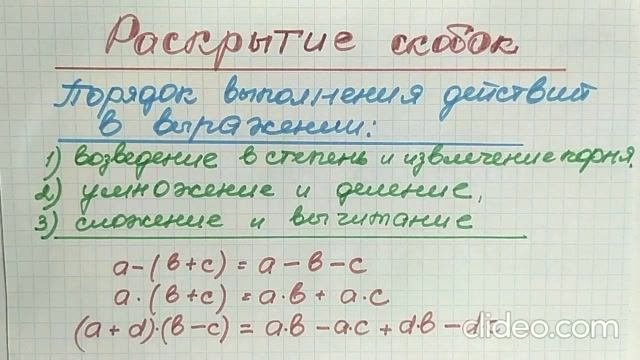 Раскрытие скобок
Порядок выполнения действий
в выражении:
1) возведение в степень и извлечение корня.
2) умножение и деление,
3) сложение и вычитание
a-(в+c) = a-в-c
a·(в+c) = a·в + a·c
(a+d)·(в-c) = a·в - a·c + d·в - d
dideo.com